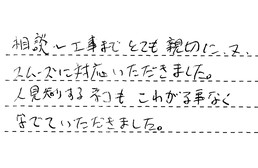 相談〜工事まで とても親切に、又、
スムーズに対応いただきました。
人見知りするネコも こわがる事なく
なでていただきました。